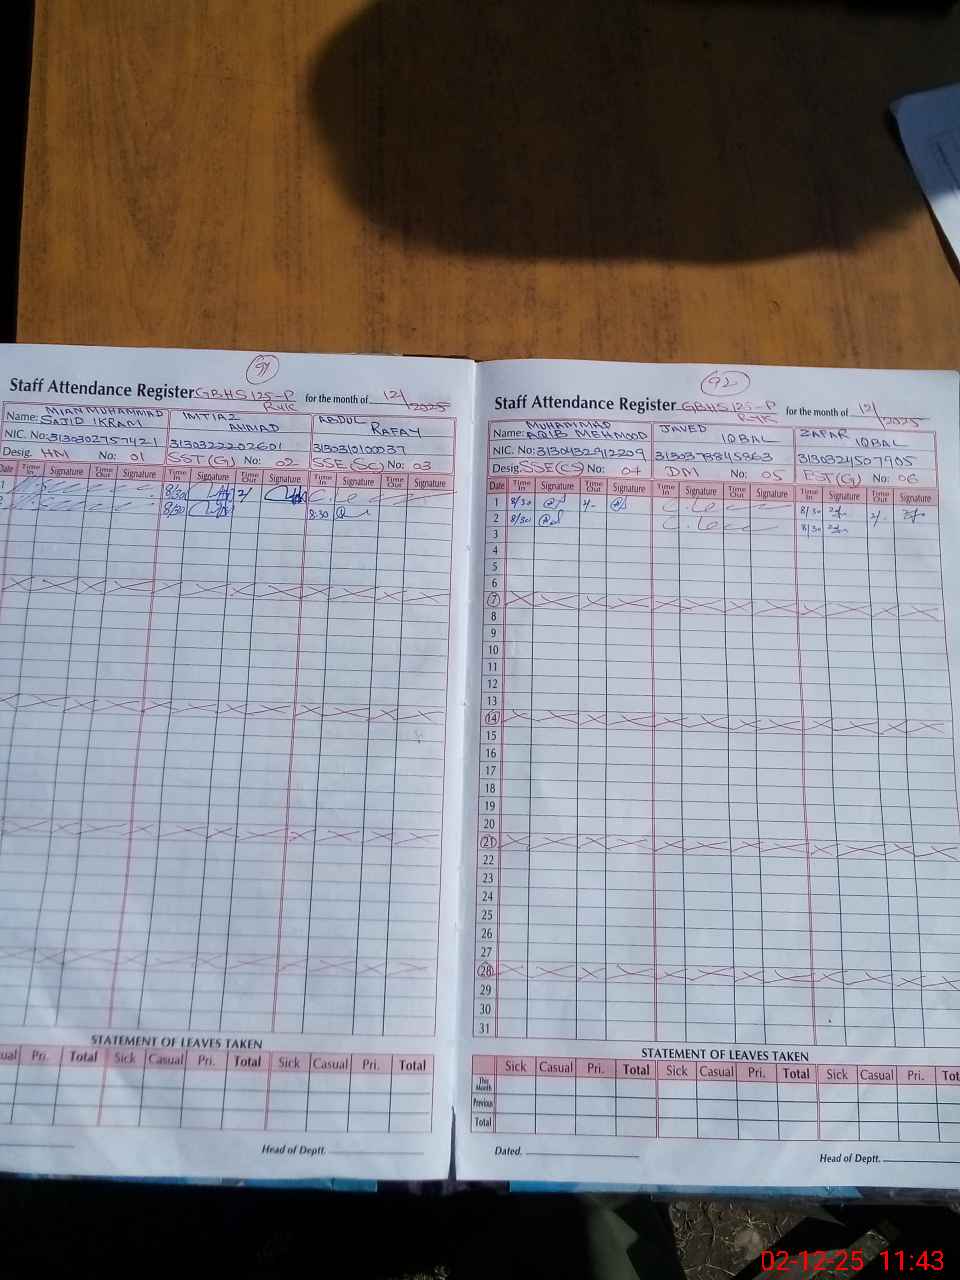 91
Staff Attendance Register GBHS 125-P for the month of 12/2025
RYK
Name: MIAN MUHAMMAD SAJID IKRAM IMTIAZ AHMAD ABDUL RAFAY
NIC. No: 3130302757421 3130322202601 313031010003
Desig. HM No: 01 SST(G) No: 02 SSE(SC) No: 03
Date Time In Signature Time Out Signature Time In Signature Time Out Signature Time In Signature Time Out Signature
1 8/30 2/ C. Le
2 8/30 8:30
STATEMENT OF LEAVES TAKEN
Pri. Total Sick Casual Pri. Total Sick Casual Pri. Total
Head of Deptt.
92
Staff Attendance Register GBHS 125-P for the month of 12/2025
RYK
Name: MUHAMMAD AQIB MEHMOOD JAVED IQBAL ZAFAR IQBAL
NIC. No: 3130432912209 3130378845963 3130324507905
Desig: SSE(CS) No: 04 DM No: 05 EST(G) No: 06
Date Time In Signature Time Out Signature Time In Signature Time Out Signature Time In Signature Time Out Signature
1 8/30 2/- C. Le 8/30 2/-
2 8/30 C. Le 8/30
3
4
5
6
7
8
9
10
11
12
13
14
15
16
17
18
19
20
21
22
23
24
25
26
27
28
29
30
31
STATEMENT OF LEAVES TAKEN
Sick Casual Pri. Total Sick Casual Pri. Total Sick Casual Pri.
This Month
Previous
Total
Dated. Head of Deptt.
02-12-25 11:43